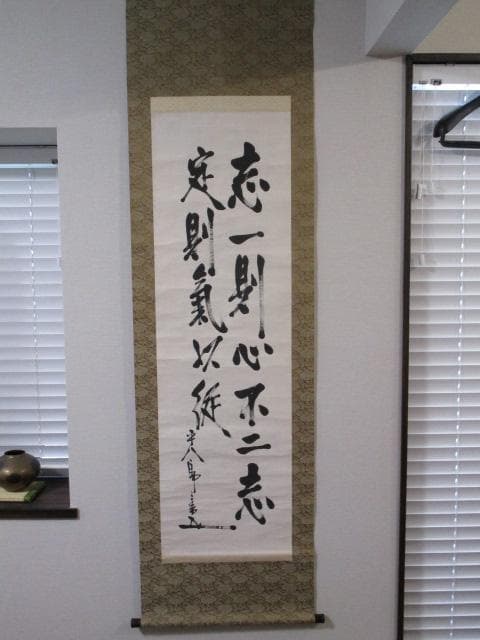 志一則心不二志
定則氣以從